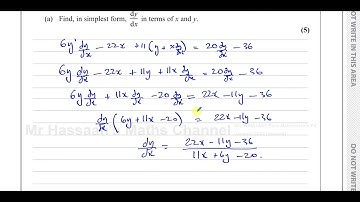 (a) Find, in simplest form, dy/dx in terms of x and y.
(5)
6y dy/dx − 22x + 11(y + x dy/dx) = 20 dy/dx − 36
6y dy/dx − 22x + 11y + 11x dy/dx = 20 dy/dx − 36
6y dy/dx + 11x dy/dx − 20 dy/dx = 22x − 11y − 36
dy/dx (6y + 11x − 20) = 22x − 11y − 36
dy/dx = (22x − 11y − 36)/(11x + 6y − 20).
Mr Hassaan Maths Channel
NOT WRITE IN THIS AREA
DO NOT WRITE